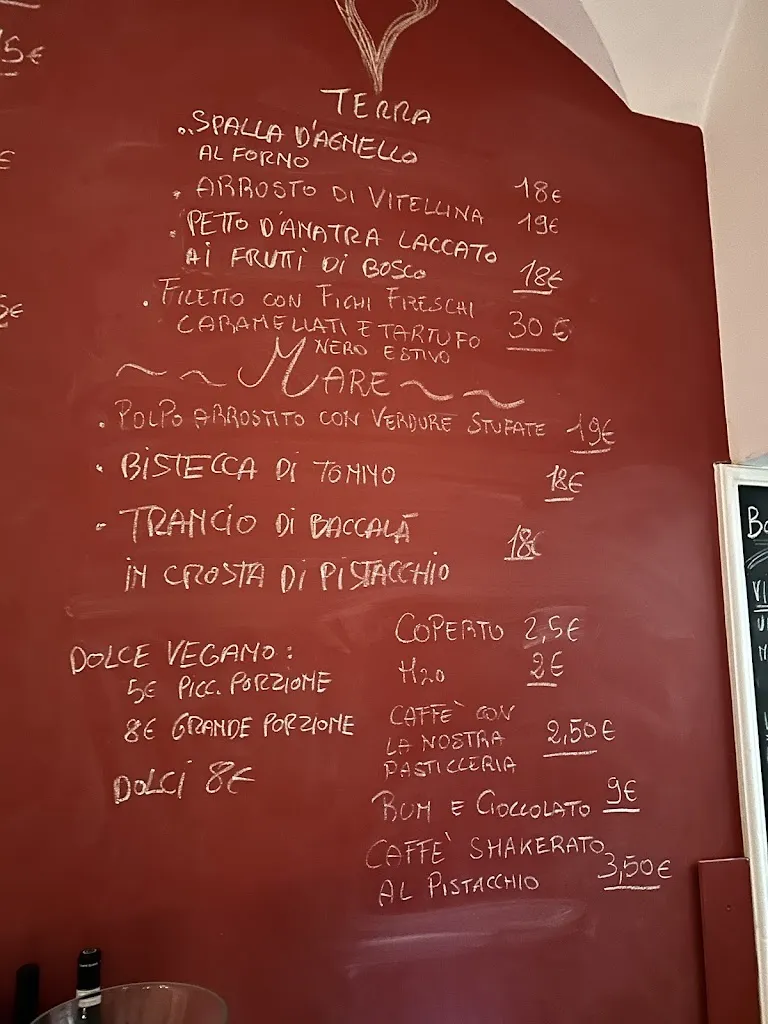 TERRA
SPALLA D'AGNELLO
AL FORNO 18€
ARROSTO DI VITELLINA 19€
PETTO D'ANATRA LACCATO
AI FRUTTI DI BOSCO 18€
FILETTO CON FICHI FRESCHI
CARAMELLATI E TARTUFO 30€
NERO ESTIVO
~ ~ MARE ~ ~
POLPO ARROSTITO CON VERDURE STUFATE 19€
BISTECCA DI TONNO 18€
TRANCIO DI BACCALÀ
IN CROSTA DI PISTACCHIO 18€
DOLCE VEGANO:
5€ PICC. PORZIONE
8€ GRANDE PORZIONE
DOLCI 8€
COPERTO 2,5€
H2O 2€
CAFFE' CON
LA NOSTRA 2,50€
PASTICCERIA
RUM E CIOCCOLATO 9€
CAFFE' SHAKERATO
AL PISTACCHIO 3,50€
5€
€
5€